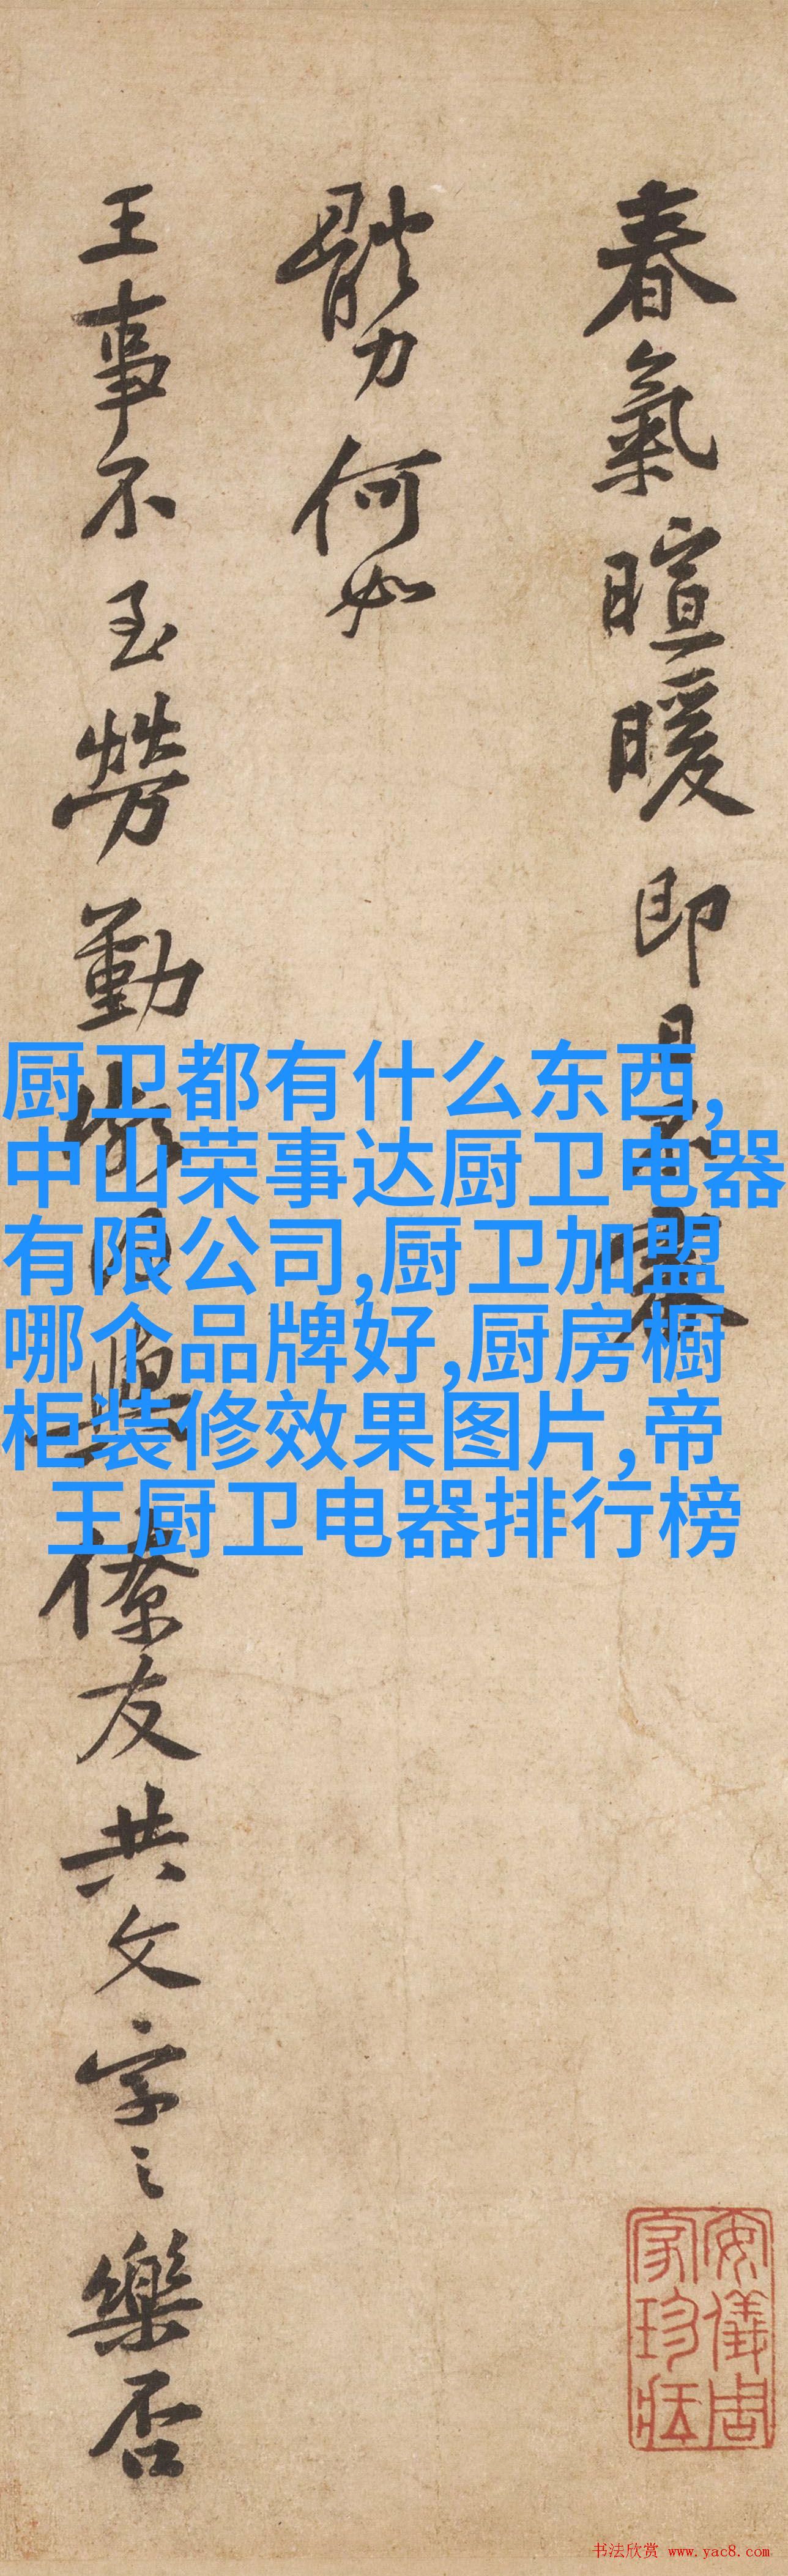 春氣暄暖即日
體力何如
王事不至勞勤僚友共文字之樂否
厨卫都有什么东西,
中山荣事达厨卫电器
有限公司,厨卫加盟
哪个品牌好,厨房橱
柜装修效果图片,帝
王厨卫电器排行榜
安儀周
家珍藏
书法欣赏 www.yac8.com